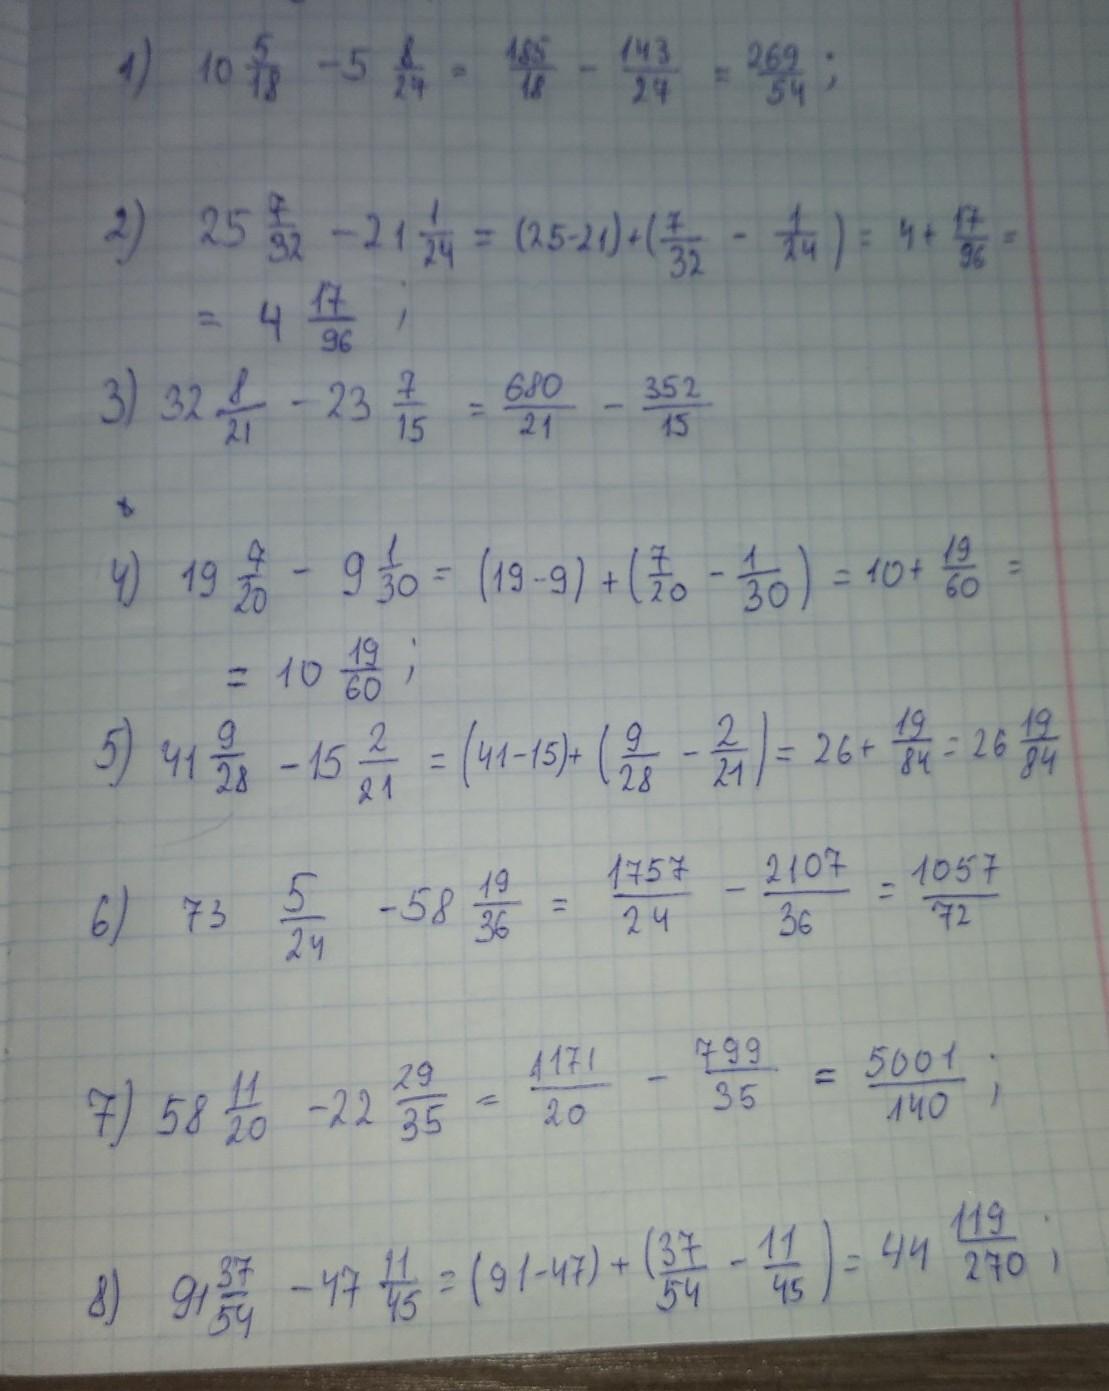 1) 10 5/18 - 5 8/24 = 185/18 - 143/24 = 269/54 ;
2) 25 7/32 - 21 1/24 = (25-21)+(7/32 - 1/24) = 4 + 17/96 =
= 4 17/96 ;
3) 32 8/21 - 23 7/15 = 680/21 - 352/15
4) 19 7/20 - 9 1/30 = (19-9) + (7/20 - 1/30) = 10 + 19/60 =
= 10 19/60 ;
5) 41 9/28 - 15 2/21 = (41-15)+ (9/28 - 2/21) = 26 + 19/84 = 26 19/84
6) 73 5/24 - 58 19/36 = 1757/24 - 2107/36 = 1057/72
7) 58 11/20 - 22 29/35 = 1171/20 - 799/35 = 5001/140 ;
8) 91 37/54 - 47 11/45 = (91-47) + (37/54 - 11/45) = 44 119/270 ;